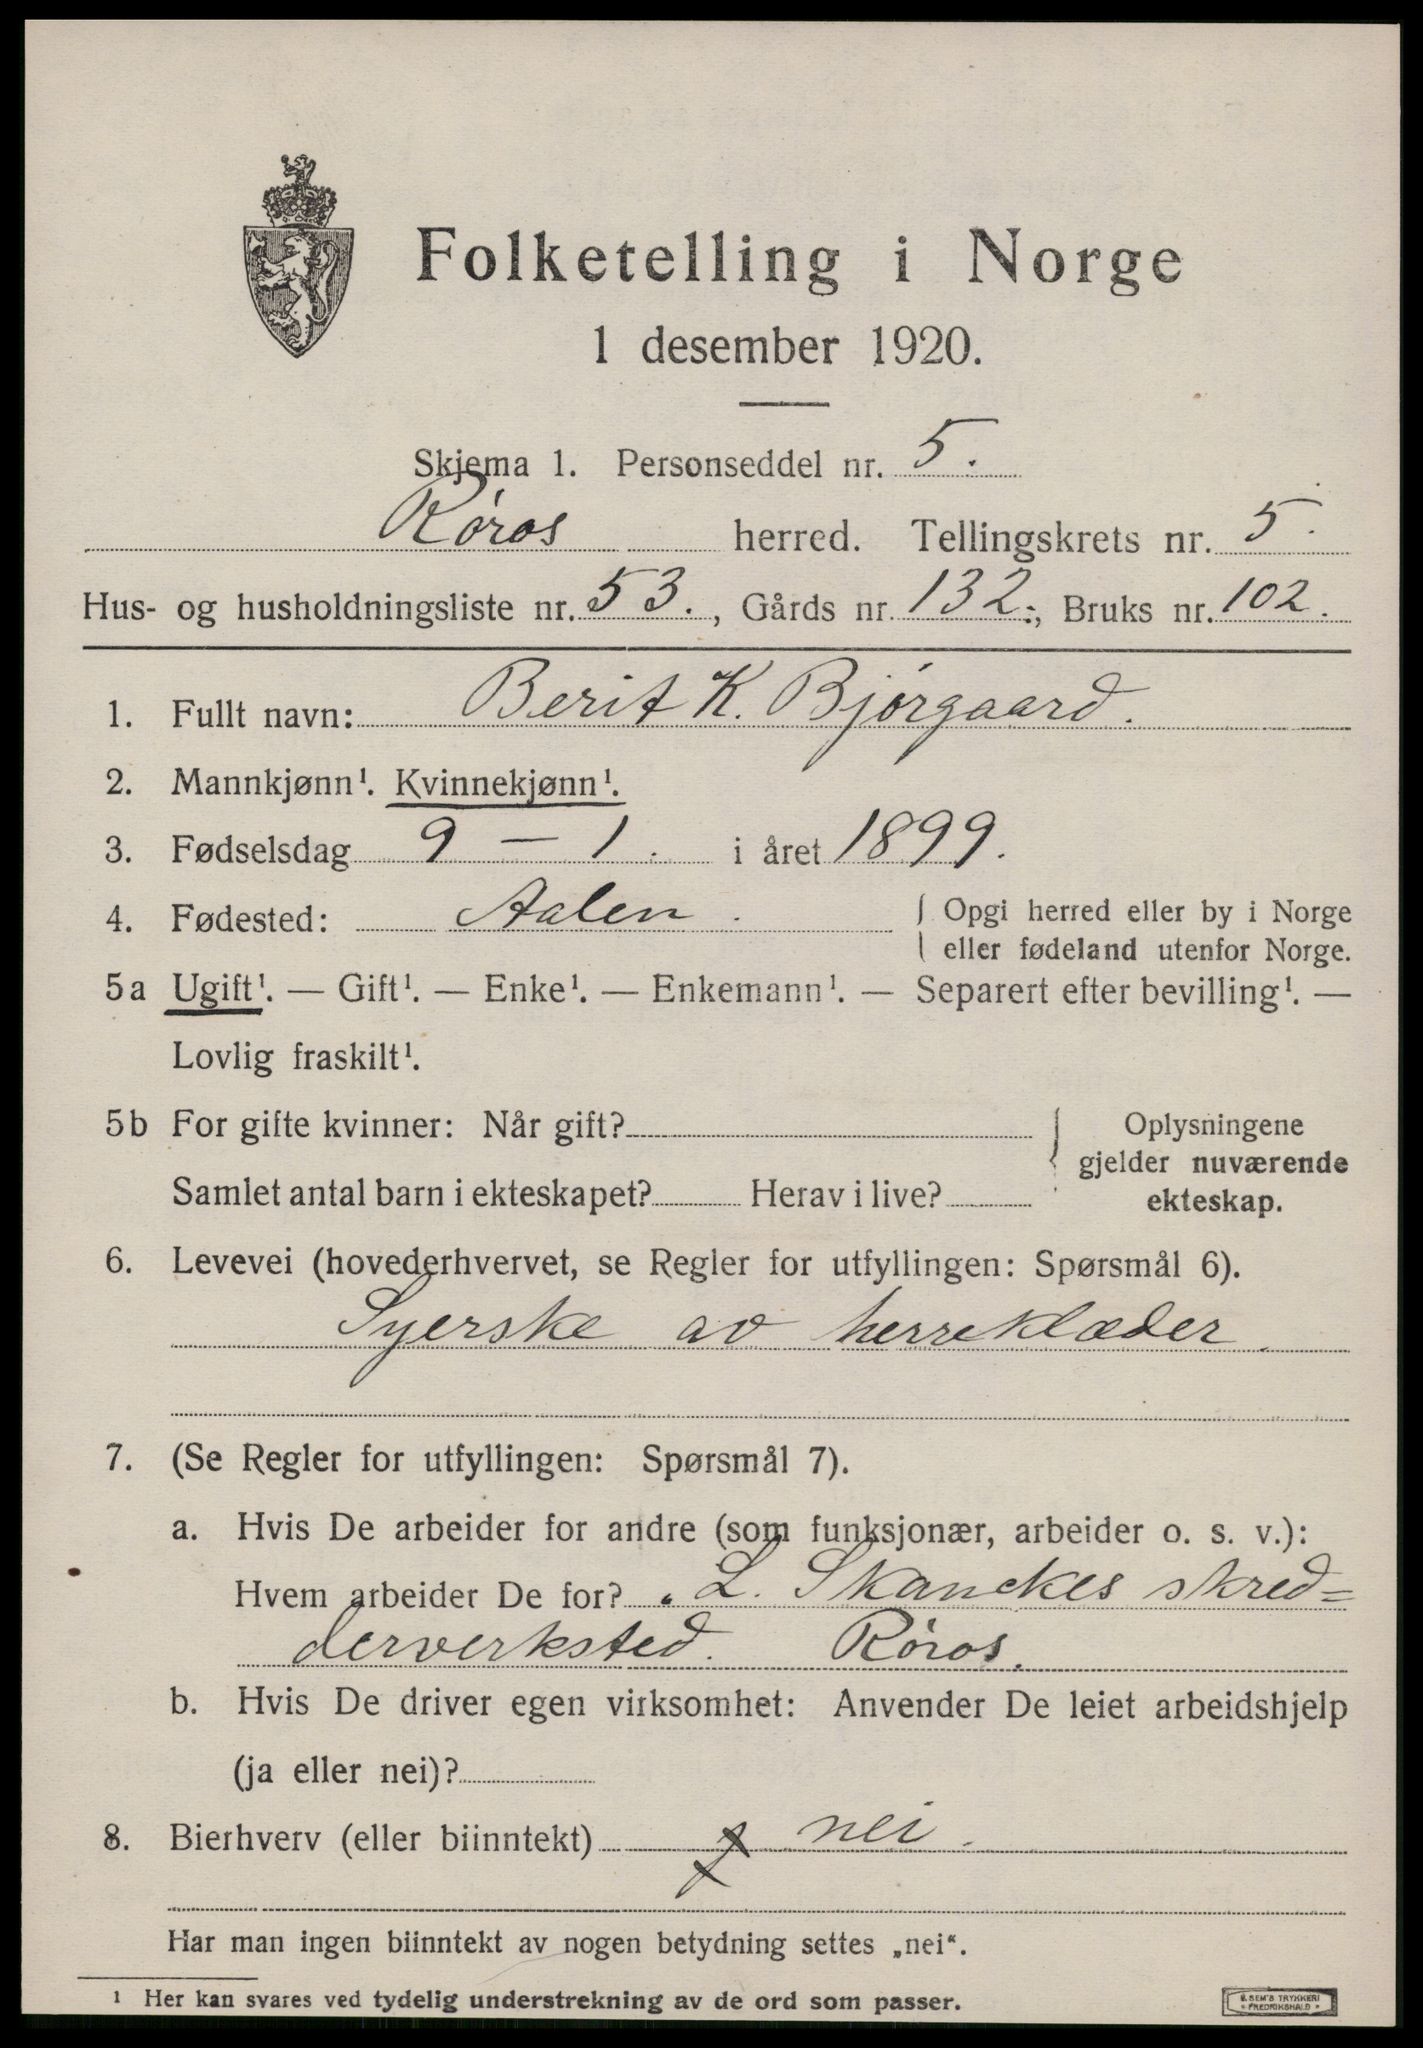 Folketelling i Norge
1 desember 1920.
Skjema 1. Personseddel nr. 5.
Røros herred. Tellingskrets nr. 5.
Hus- og husholdningsliste nr. 53., Gårds nr. 132., Bruks nr. 102.
1. Fullt navn: Berit K. Bjørgaard.
2. Mannkjønn¹. Kvinnekjønn¹.
3. Fødselsdag 9 – 1. i året 1899.
4. Fødested: Aalen. { Opgi herred eller by i Norge
eller fødeland utenfor Norge.
5a Ugift¹. — Gift¹. — Enke¹. — Enkemann¹. — Separert efter bevilling¹. —
Lovlig fraskilt¹.
5b For gifte kvinner: Når gift? { Oplysningene
gjelder nuværende
Samlet antal barn i ekteskapet? Herav i live?
ekteskap.
6. Levevei (hovederhvervet, se Regler for utfyllingen: Spørsmål 6).
Syerske av herreklæder.
7. (Se Regler for utfyllingen: Spørsmål 7).
a. Hvis De arbeider for andre (som funksjonær, arbeider o. s. v.):
Hvem arbeider De for? L. Skanckes skred=
derverksted. Røros.
b. Hvis De driver egen virksomhet: Anvender De leiet arbeidshjelp
(ja eller nei)?
8. Bierhverv (eller biinntekt) nei.
Har man ingen biinntekt av nogen betydning settes „nei“.
¹ Her kan svares ved tydelig understrekning av de ord som passer.
E. SEM'S TRYKKERI
FREDRIKSHALD